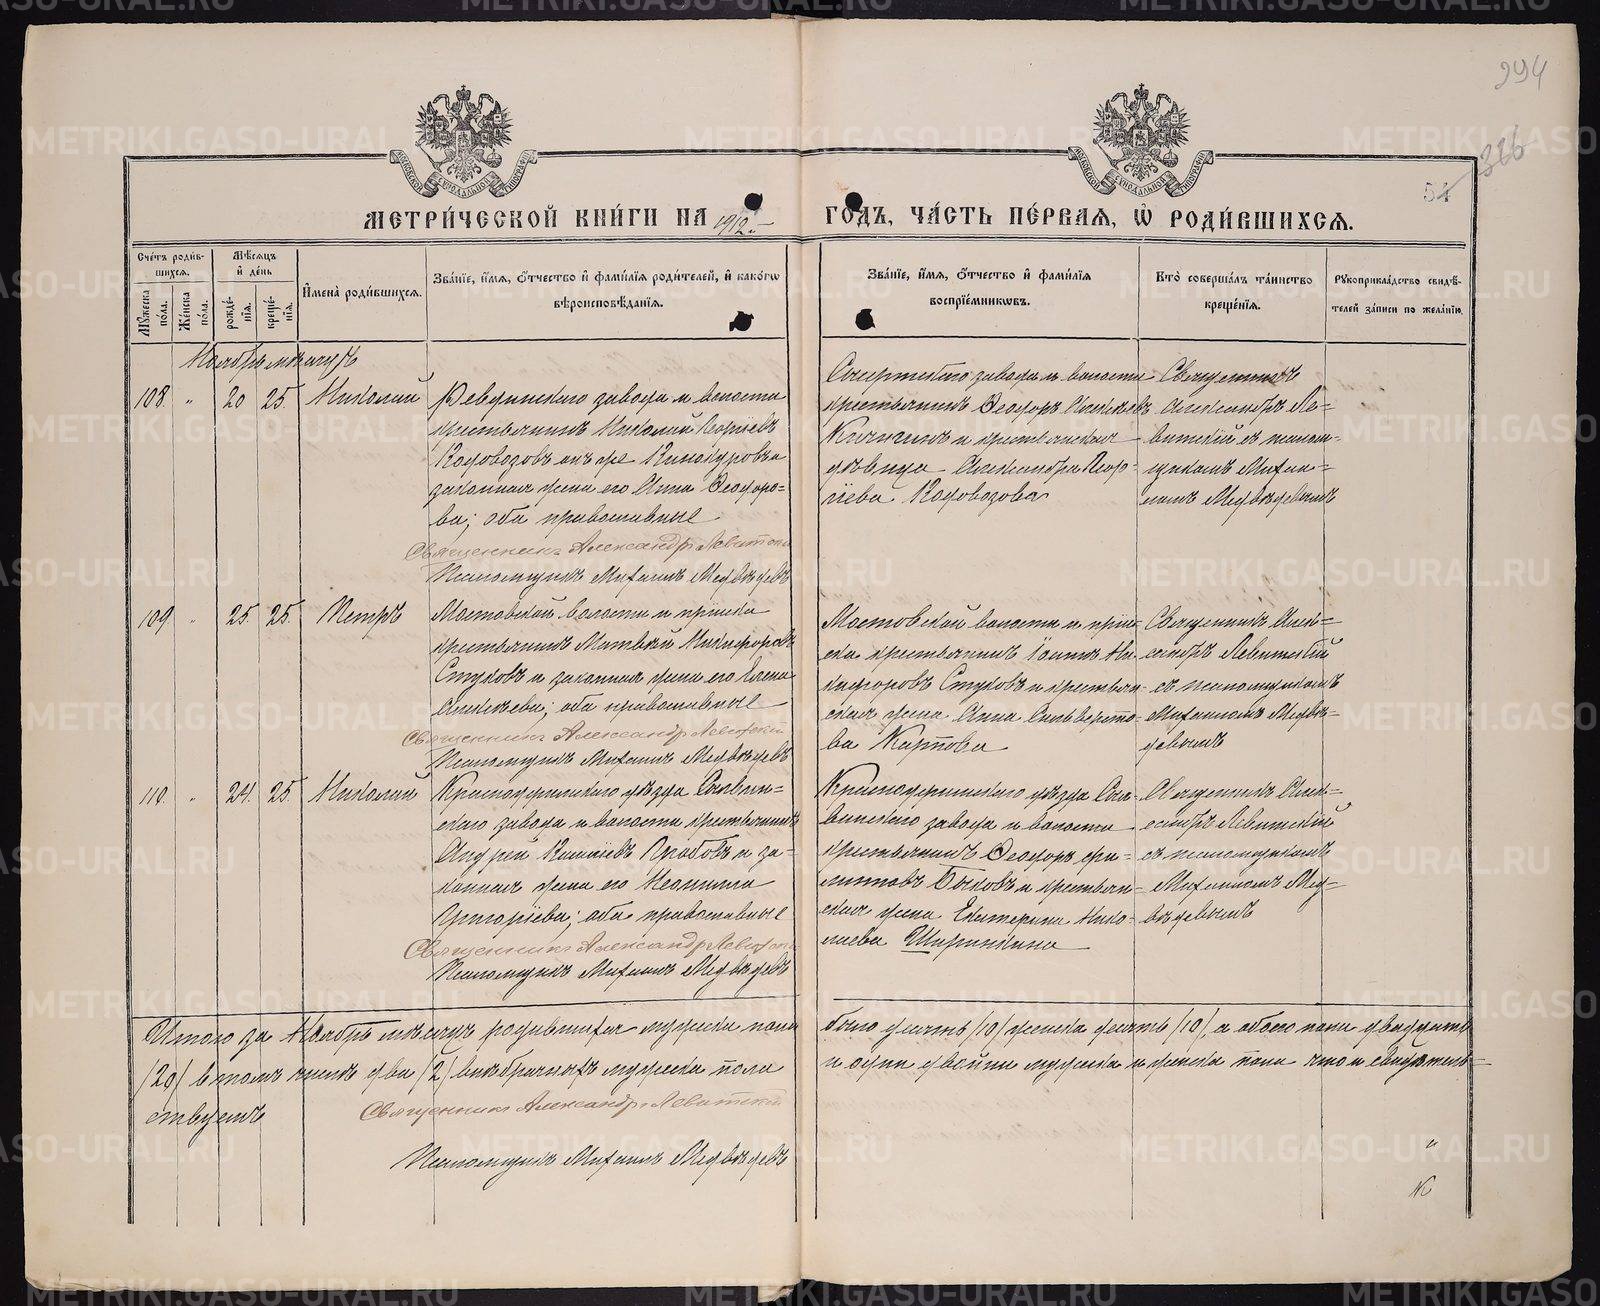 294
326
54
МЕТРИ́ЧЕСКОЙ КНИ́ГИ НА 1912 ГОДЪ, ЧА́СТЬ ПЕ́РВАЯ, Ѡ РОДИ́ВШИХСЯ.
Сче́тъ роди́вшихся.
Мѣ́сяцъ и́ де́нь
Му́жеска по́ла.
Же́нска по́ла.
рожде́нїя.
креще́нїя.
И҆мена̀ роди́вшихся.
Зва́нїе, и҆́мя, ѻ҆́тчество и҆ фами́лїя роди́телей, и҆ како́гѡ вѣроисповѣ́данїя.
Зва́нїе, и҆́мя, ѻ҆́тчество и҆ фами́лїя воспрїе́мникѡвъ.
Кто̀ соверша́лъ та́инство креще́нїя.
Рꙋкоприкла́дство свидѣ́телей за́писи по жела́нїю.
Ноябрь мѣсяцъ
108 " 20 25 Николай
Ревдинскаго завода и волости
крестьянинъ Николай Георгіевъ
законная жена его Анна Ѳеодоро=
ва; оба православные
Священникъ Александръ Левитскій
Псаломщикъ Михаилъ Медвѣдевъ
Сысертскаго завода и волости
крестьянинъ Ѳеодоръ
и крестьянская
дѣвица Александра Геор-
гіева
Священникъ
Александръ Ле=
витскій съ псалом-
щикомъ Михаи=
ломъ Медвѣдевымъ
109 " 25 25 Петръ
Мостовской волости и прииска
крестьянинъ Матвѣй Никифоровъ
Стуковъ и законная жена его Елена
Алексѣева; оба православные
Священникъ Александръ Левитскій
Псаломщикъ Михаилъ Медвѣдевъ
Мостовской волости и прии-
ска крестьянинъ Іоаннъ Ни-
кифоровъ Стуковъ и крестьян-
ская жена Анна Сильверсто-
ва Карпова
Священникъ Алек=
сандръ Левитскій
съ псаломщикомъ
Михаиломъ Медвѣ-
девымъ
110 " 24 25 Николай
Красноуфимскаго уѣзда Сылвин=
скаго завода и волости крестьянинъ
Андрей и за=
конная жена его Неонилла
Григоріева; оба православные
Священникъ Александръ Левитскій
Псаломщикъ Михаилъ Медвѣдевъ
Красноуфимскаго уѣзда Сыл-
винскаго завода и волости
крестьянинъ Ѳеодоръ Фи=
липповъ Быковъ и крестьян=
ская жена Екатерина Нико-
лаева Ширинкина
Священникъ Алек=
сандръ Левитскій
съ псаломщикомъ
Михаиломъ Мед=
вѣдевымъ
Итого за Ноябрь мѣсяцъ родившихся мужска пола было десять /10/ женска десять /10/, а обоего пола двадцать
/20/ въ томъ числѣ два /2/ внѣбрачныхъ мужска пола и одни двойни мужска и женска пола что и свидѣтель=
ствуемъ
Священникъ Александръ Левитскій
Псаломщикъ Михаилъ Медвѣдевъ
METRIKI.GASO-URAL.RU